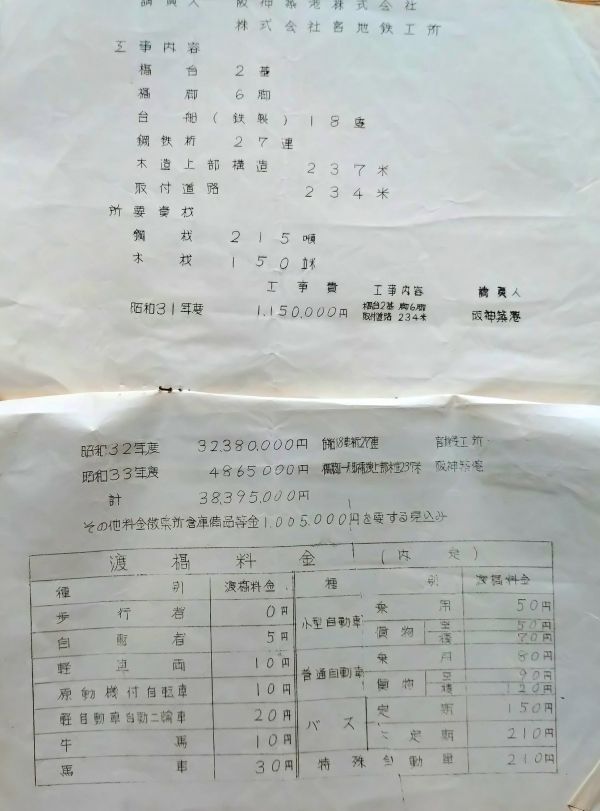 請負人　阪神築港株式会社
株式会社宮地鉄工所
工事内容
橋台　2基
橋脚　6脚
台船（鉄製）18隻
鋼鉄桁　27連
木造上部構造　237米
取付道路　234米
所要資材
鋼材　215噸
木材　150立米
工事費　工事内容　請負人
昭和31年度　1,150,000円　橋台2基 脚6脚 取付道路 234米　阪神築港
昭和32年度　32,380,000円　台船18隻桁27連　宮地鉄工所
昭和33年度　4,865,000円　上部木造237米　阪神築港
計　38,395,000円
その他料金徴集所倉庫備品等金1,005,000円を要する見込み
渡橋料金（内定）
種別　渡橋料金　種別　渡橋料金
歩行者　0円　小型自動車　乗用　50円
自転者　5円　貨物　空　50円
積　70円
軽車両　10円　普通自動車　乗用　80円
原動機付自転車　10円　貨物　空　90円
積　120円
軽自動車自動二輪車　20円　バス　定期　150円
牛馬　10円　不定期　210円
馬車　30円　特殊自動車　210円